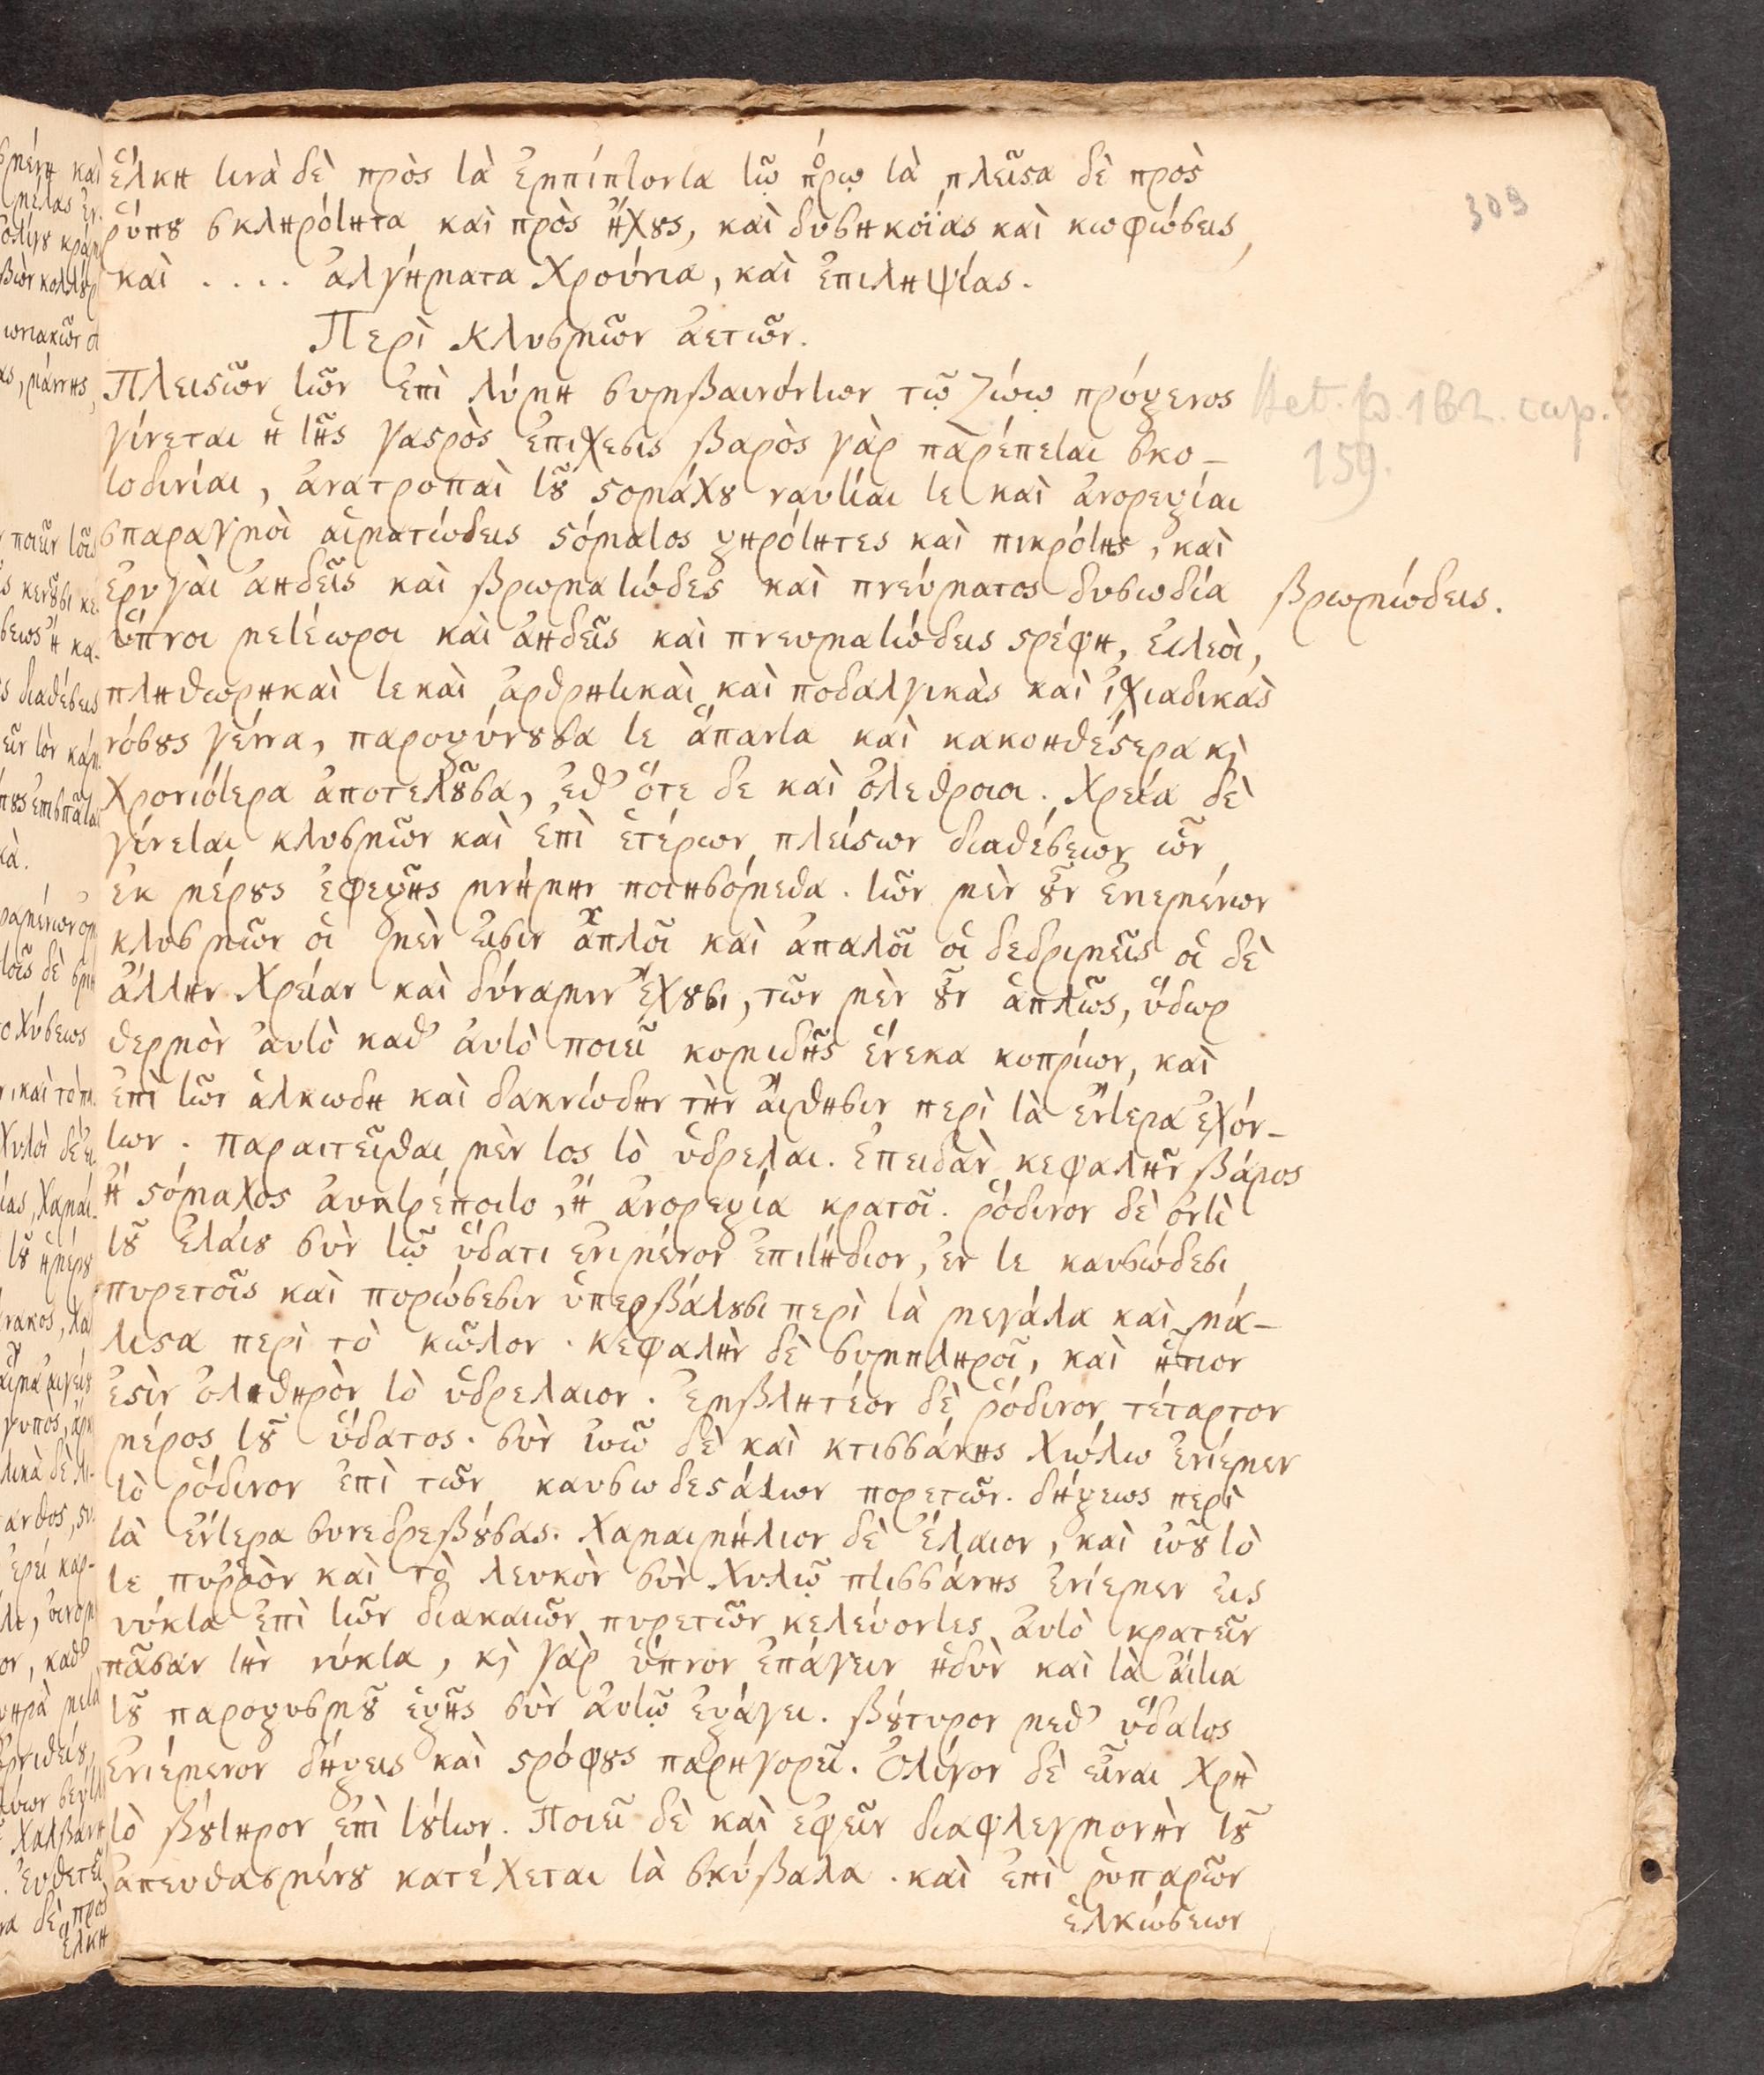 ἕλκη τινὰ δὲ πρὸς τὰ ἐμπίπτοντα τῷ πόρῳ τὰ πλεῖϛα δὲ πρὸς
ῥύπȣ σκληρότητα καὶ πρὸς ἤχȣς, καὶ δυσηκοΐας καὶ κωφώσεις,
καὶ .... ἀλγήματα χρόνια, καὶ ἐπιληψίας.
Περὶ Κλυσμῶν ἀετιῶν.
Πλειϛῶν τῶν ἐπὶ λύμη συμβαινόντων τῷ ζώῳ πρόξενος
γίνεται ἡ τῆς γαϛρὸς ἐπίχεσις βαρὸς γὰρ πὰρέπεται σκο-
τοδινίαι, ἀνατροπαὶ τȣ͂ ϛομάχȣ ναυτίαι τε καὶ ἀνορεξίαι
σπαραγμοὶ αἱματώδεις ϛόματος ξηρότητες καὶ πικρότης, καὶ
ἐρυγαὶ ἀηδεῖς καὶ βρωματώδες καὶ πνεύματος δυσωδία
βρωμώδεις.
ὕπνοι μετέωροι καὶ ἀηδεῖς καὶ πνευματώδεις ϛρέφη, εἰλεοὶ,
πληθωρηκαὶ τε καὶ ἀρθρητικαὶ καὶ ποδαλγικὰς καὶ ἰχιαδικὰς
νόσȣς γέννα, παροξύνȣσα τε ἅπαντα καὶ κακοηθέϛερα κ̀
χρονιότερα ἀποτελȣ͂σα, ἐθ' ὅτε δε καὶ ὀλεθροιοι. χρεία δὲ
γίνεται κλυσμῶν καὶ ἐπὶ ἑτέρων πλείϛων διαθέσεων ὧν
ἐκ μέρȣς ἐφεξῆς μνήμην ποιησόμεθα. τῶν μὲν ȣ̓͂ν ἐνιεμένων
κλυσμῶν οἱ μὲν εἰσιν ἁπλοῖ καὶ ἁπαλοῖ οἱ δεδριμεῖς οἱ δὲ
ἄλλην χρείαν καὶ δύναμιν ἔχȣσι, τῶν μὲν ȣ̓͂ν ἁπλῶς, ὕδωρ
θερμὸν αὐτὸ καθ' αὑτὸ ποιεῖ κομιδῆς ἕνεκα κοπρίων, καὶ
ἐπὶ τῶν ἁλκωδη καὶ δακνώδην τὴν αἴσθησιν περὶ τὰ ἔντερα ἐχόν-
των. παραιτεῖσθαι μὲν τος τὸ ὑδρελαι. ἐπειδὰν κεφαλὴν βάρος
ἢ ϛόμαχος ἀνατρέποιτο, ἢ ἀνορεξία κρατοῖ. ῥόδινον δὲ ἀντὶ
τȣ͂ ἐλάιȣ σὺν τῷ ὕδατι ἐνιμένον ἐπιτήδιον, ἐν τε καυσώδεσι
πυρετοῖς καὶ πυρώσεσιν ὑπερβάλȣσι περὶ τὰ μεγάλα καὶ μά-
λιϛα περὶ τὸ κῶλον. κεφαλὴν δὲ συμπληροῖ, καὶ ἧττον
ἐϛὶν ὀληθηρὸν τὸ ὑδρελαιον. ἐμβλητέον δὲ ῥόδινον τέταρτον
μέρος τȣ͂ ὕδατος. σὺν ὠῷ δὲ καὶ κτισσάνης χώλω ἐνίεμεν
τὸ ῥόδινον ἐπὶ τῶν καυσωδεϛάτων πορετῶν. δήξεως περὶ
τὰ ἔντερα συνεδρεβȣ́σας. χαμαιμήλιον δὲ ἔλαιον, καὶ ὠȣ͂ τὸ
τε πυῤῥὸν καὶ τὸ λευκὸν σὺν χυλῷ πτισσάνης ἐνίεμεν εἰς
νύκτα ἐπὶ τῶν διακαιῶν πυρετῶν κελεύοντες αὐτὸ κρατεῖν
πᾶσαν τὴν νύκτα, κ̀ γὰρ ὕπνον ἐπάγειν ἡδὺν καὶ τὰ αἴτια
τȣ͂ παροξυσμȣ͂ ἑξῆς σὺν αὐτῷ ἐξάγει. βȣ́τυρον μεθ' ὕδατος
ἐνιέμενον δήξεις καὶ ϛρόφȣς παρηγορεῖ. Ὀλίγον δὲ εἶναι χρὴ
τὸ βȣ́τηρον ἐπὶ τȣ́των. Ποιεῖ δὲ καὶ ἐφεῖν διαφλεγμονὴν τȣ͂
ἀπευθασμένȣ κατέχεται τὰ σκύβαλα. καὶ ἐπὶ ῥυπαρῶν
ἑλκώσεων
309
Aet. p. 182. cap.
159.